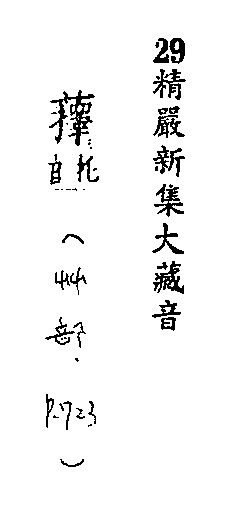 29精嚴新集大藏音
（艸部．P.723）